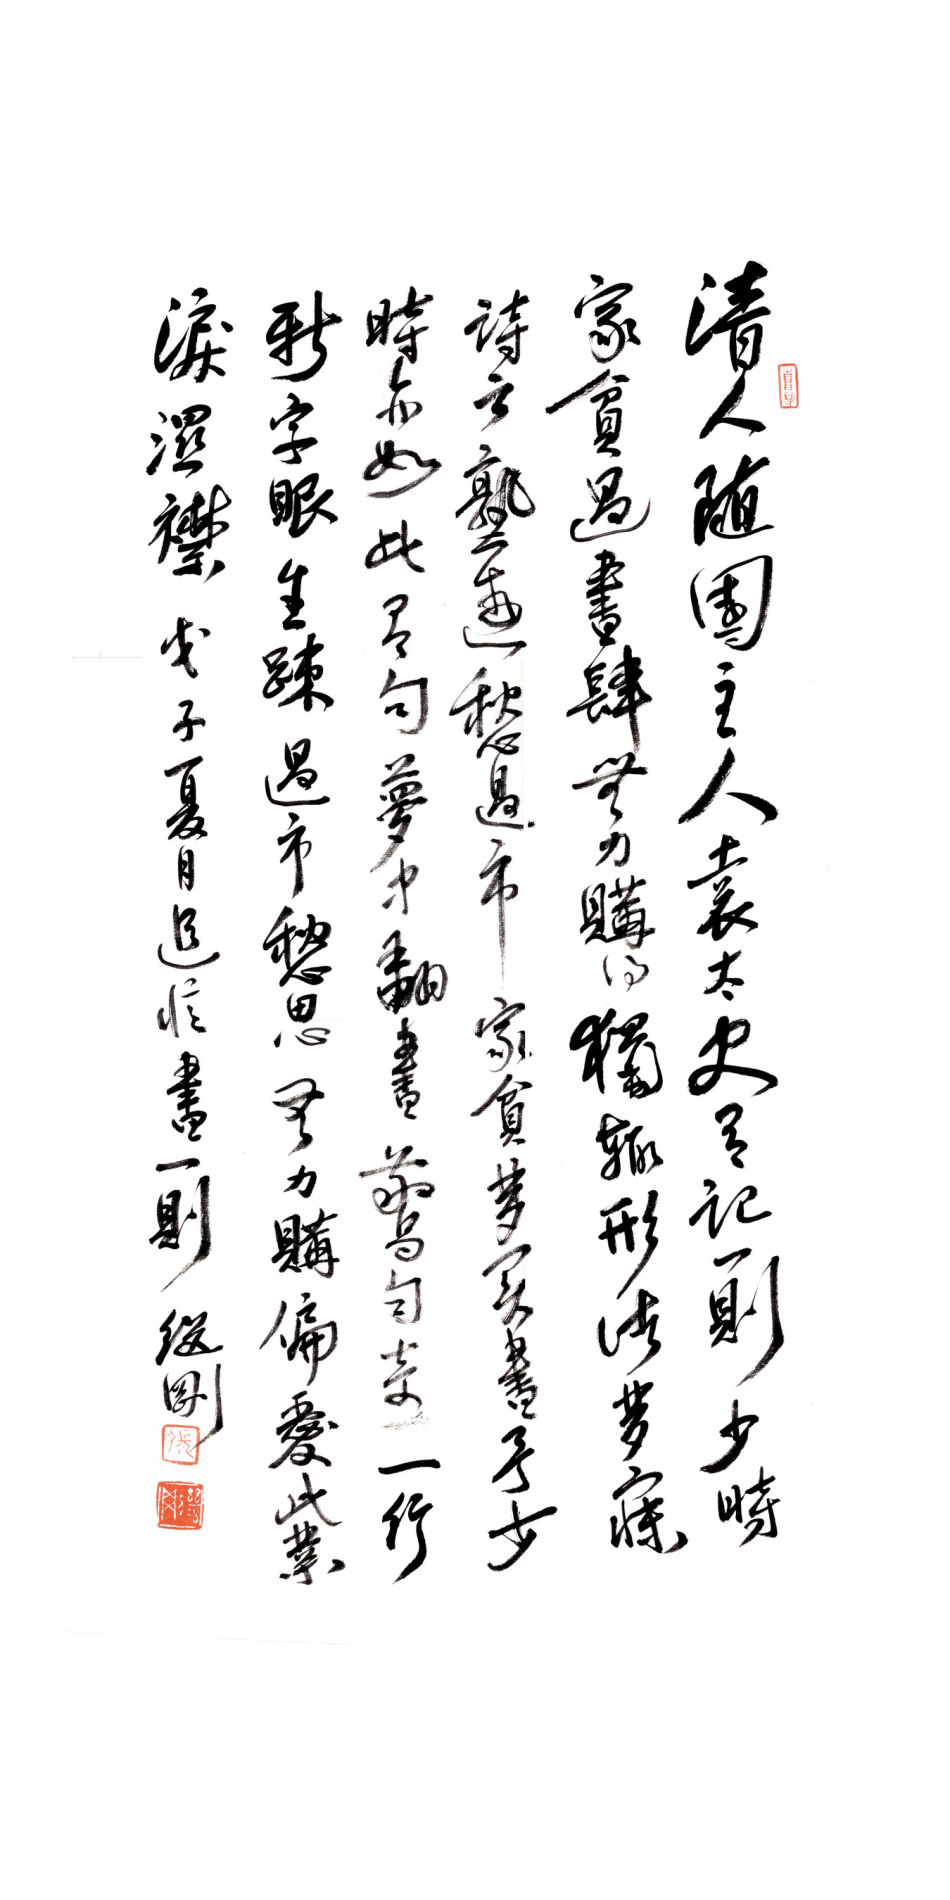 清人随園主人袁太史有記一則少時
家貧過書肆無力購得獨輒形諸夢寐
詩云塾遠愁過市家貧夢買書予少
時亦如此有句夢中翻書驚句奇一行
新字眼生疎過市愁思無力購偏愛此業
淚濕襟戊子夏月追憶書一則繼剛